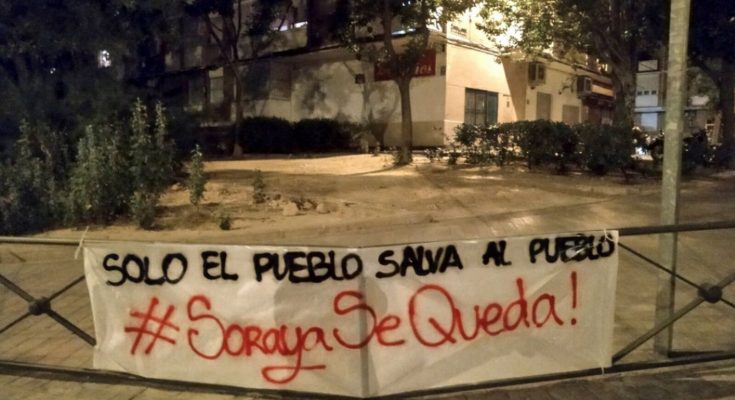 SOLO EL PUEBLO SALVA AL PUEBLO
#SorayaSeQueda!